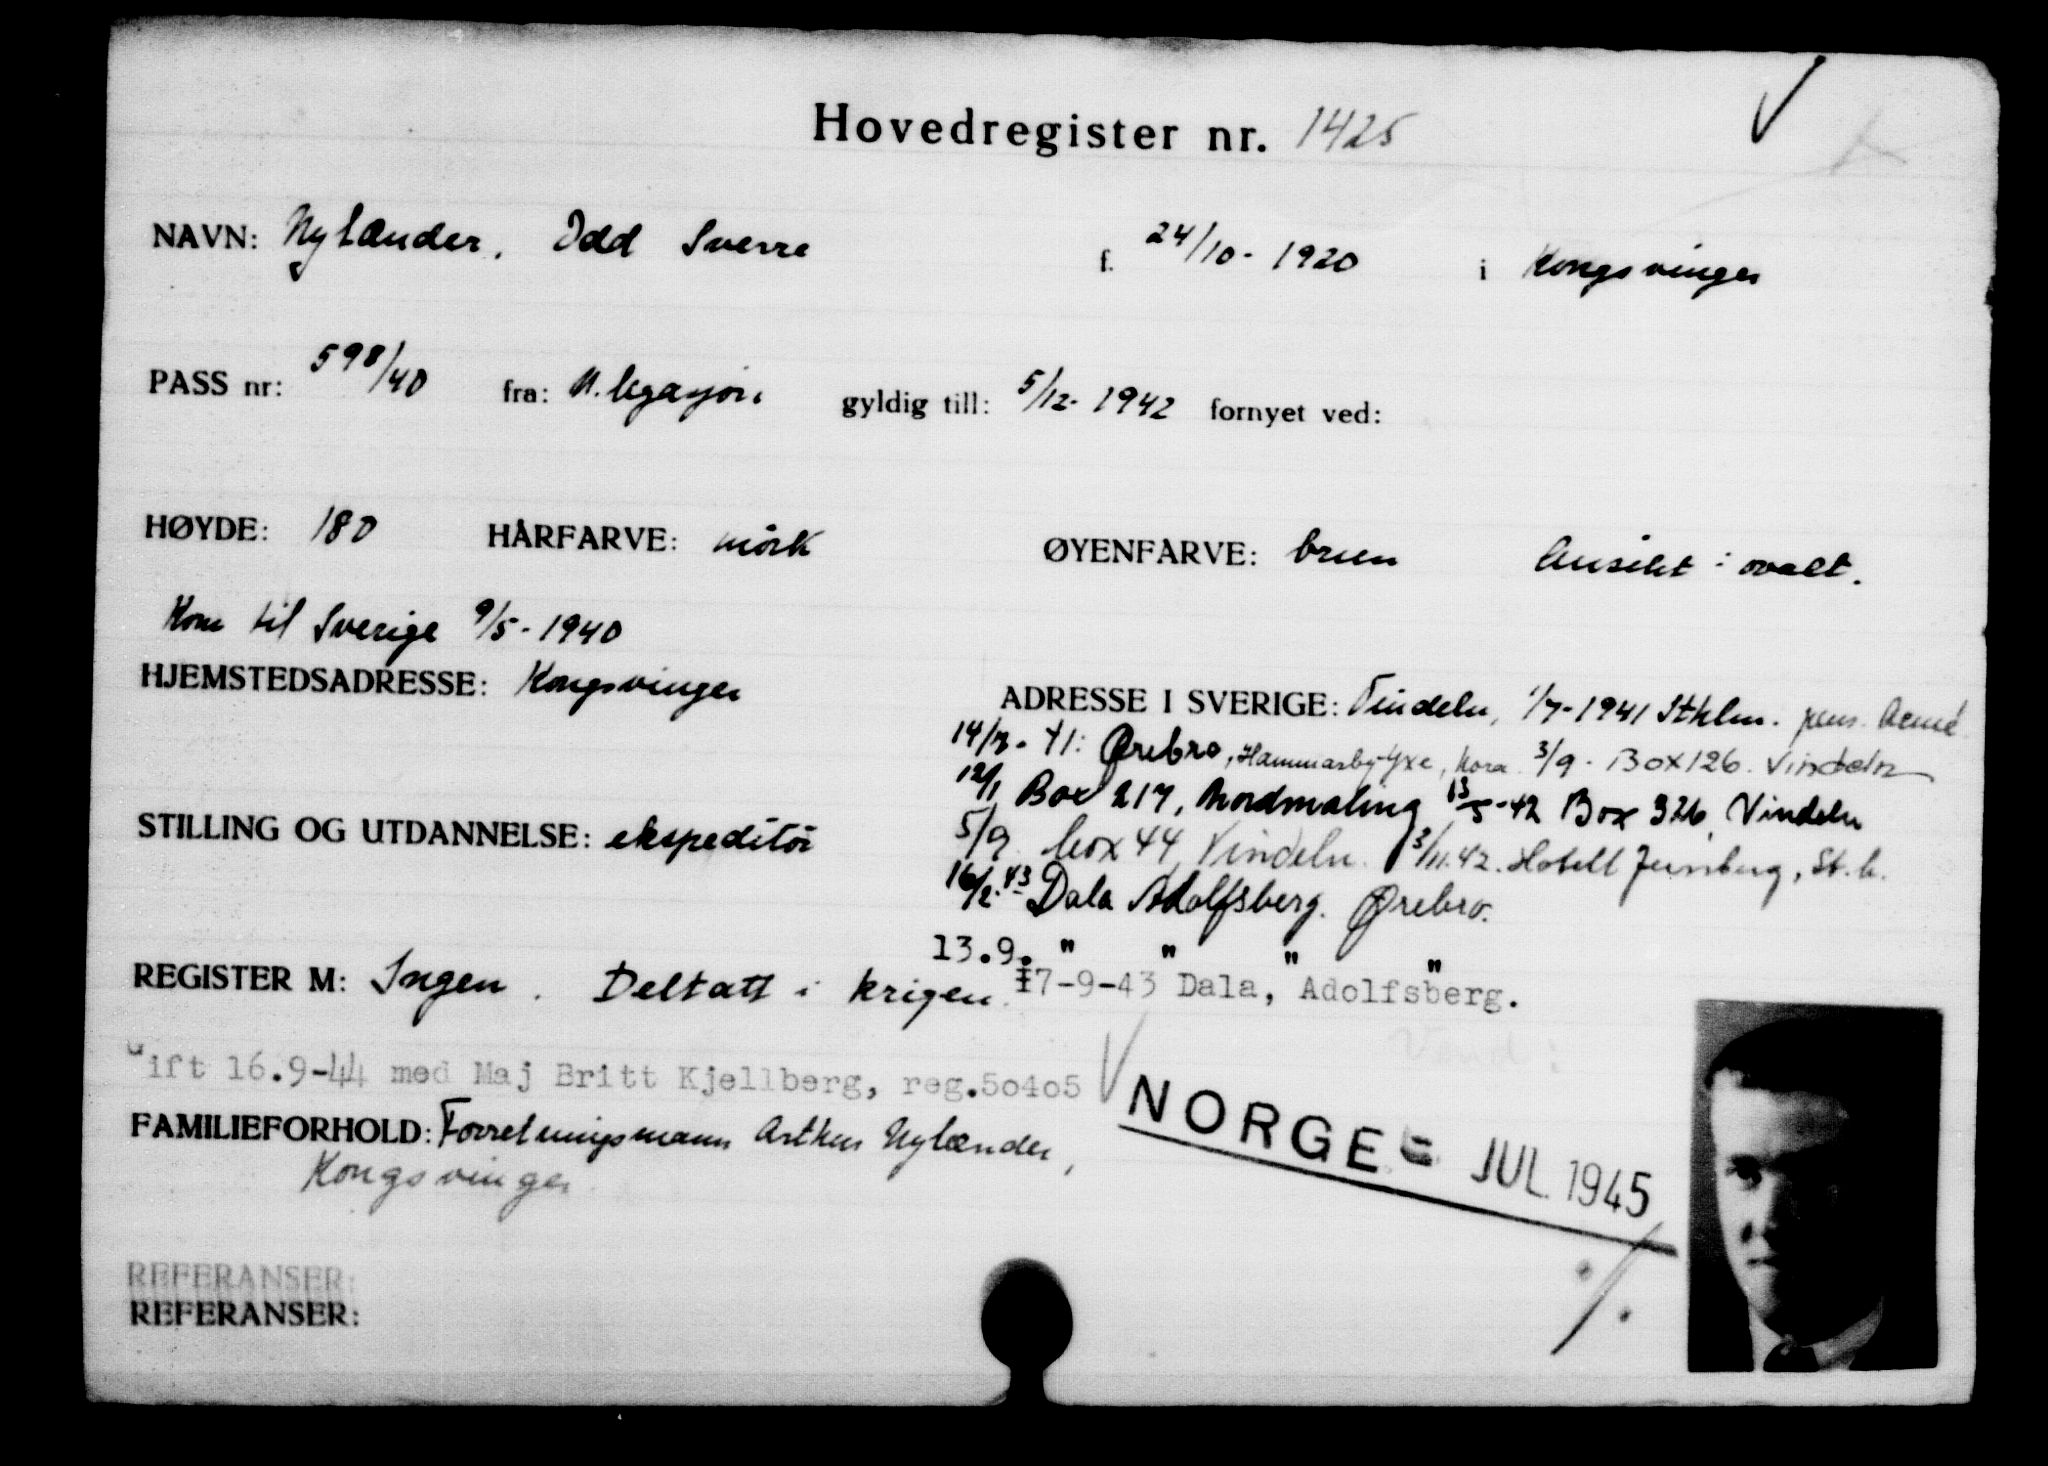 Hovedregister nr. 1425
NAVN: Nylænder, Odd Sverre f. 24/10- 1920 i Kongsvinger
PASS nr: 598/40 fra: N. legasjon gyldig till: 5/12- 1942 fornyet ved:
HØYDE: 180 HÅRFARVE: mörk ØYENFARVE: brun Ansikt : ovalt.
Kom til Sverige 9/5- 1940
HJEMSTEDSADRESSE: Kongsvinger
ADRESSE I SVERIGE: Vindeln, 1/7-1941 Sthlm. pens. Acmé
14/7- 41: Ørebro, Hammarby-Yxe, Nora 3/9 - Box 126. Vindeln
12/1 Box 217, Nordmaling 13/5-42 Box 326, Vindeln
STILLING OG UTDANNELSE: ekspeditör
5/9 box 44 Vindeln. 3/11.42. Hotell , St.h.
16/2.43 Dala Adolfsberg. Ørebro.
13.9. " " " "
REGISTER M: Ingen. Deltatt i krigen.
17-9-43 Dala, Adolfsberg.
Vend :
Gift 16.9-44 med Maj Britt Kjellberg, reg.50405
NORGE - JUL 1945
FAMILIEFORHOLD: Forretningsmann Arthur Nylænder,
Kongsvinger
REFERANSER:
REFERANSER: